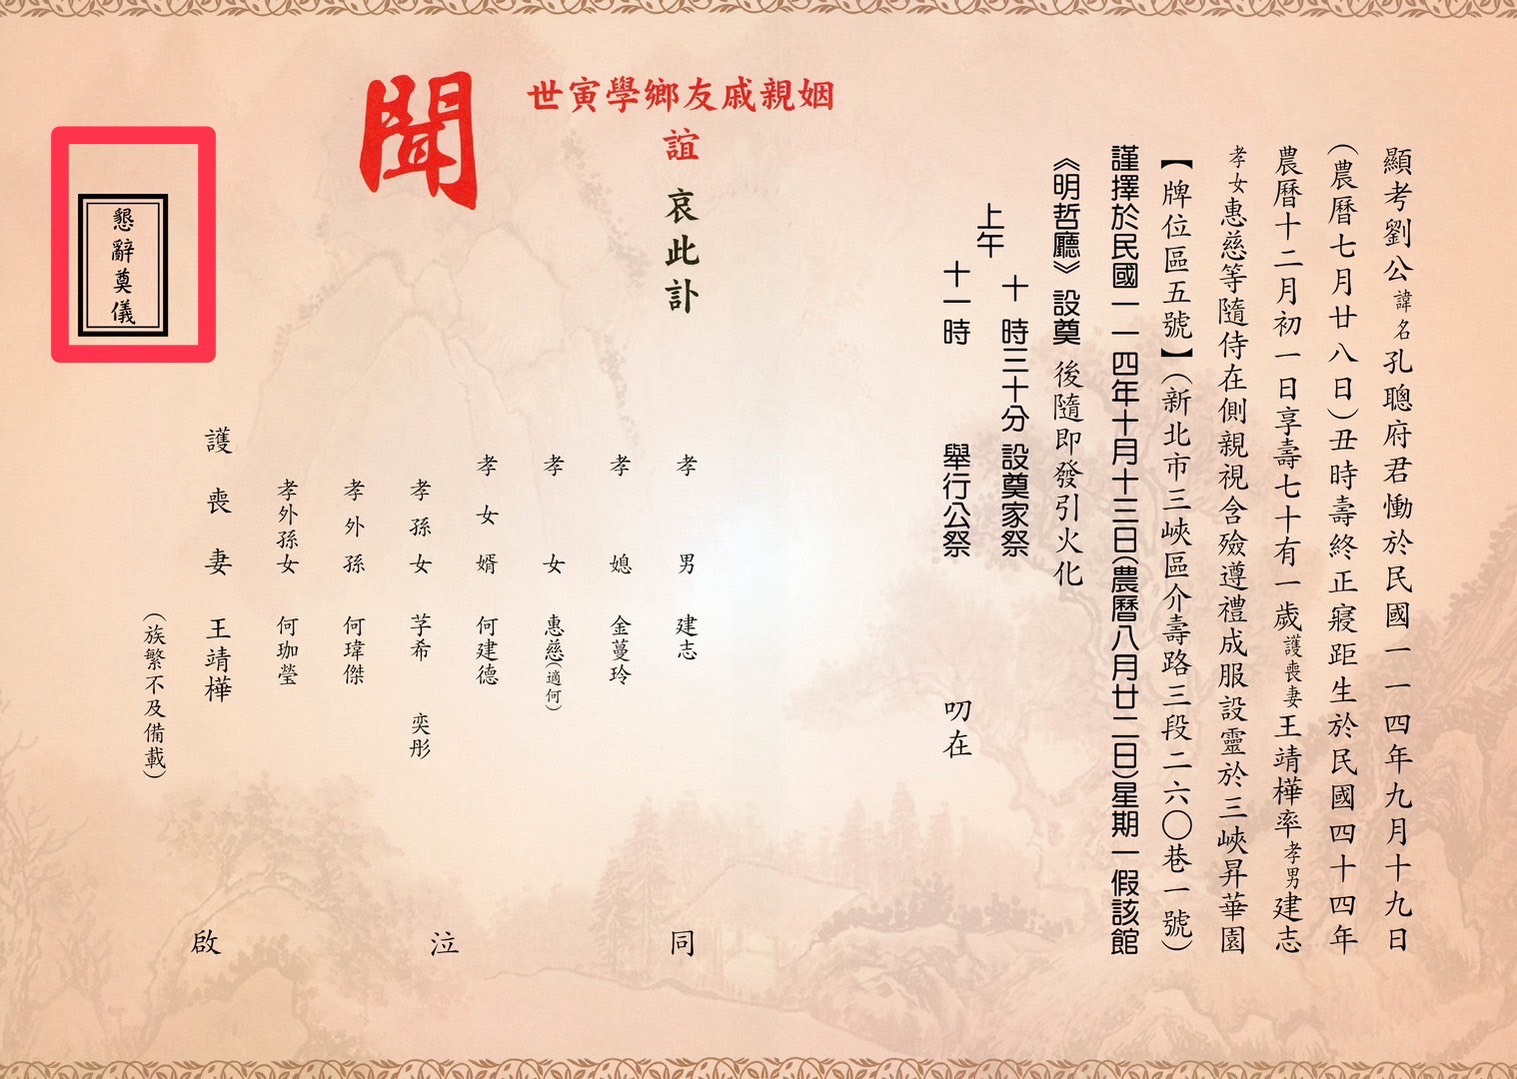 顯考劉公諱名孔聰府君慟於民國一一四年九月十九日
(農曆七月廿八日)丑時壽終正寢距生於民國四十四年
農曆十二月初一日享壽七十有一歲護喪妻王靖樺率孝男建志
孝女惠慈等隨侍在側親視含殮遵禮成服設靈於三峽昇華園
【牌位區五號】(新北市三峽區介壽路三段二六〇巷一號)
謹擇於民國一一四年十月十三日(農曆八月廿二日)星期一假該館
《明哲廳》設奠後隨即發引火化
上午
十時三十分設奠家祭
十一時舉行公祭
叨在
姻親戚友鄉學寅世
誼
哀此訃
聞
孝男 建志
孝媳 金蔓玲
孝女 惠慈(適何)
孝女婿 何建德
孝孫女 芓希 奕彤
孝外孫 何瑋傑
孝外孫女 何珈瑩
護喪妻 王靖樺
(族繁不及備載)
同泣啟
懇辭奠儀